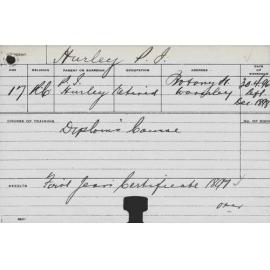 Hurley P. J.
AGE RELIGION PARENT OR GUARDIAN OCCUPATION ADDRESS DATE OF
17 R.C. P. J. Hurley Retired Botany St. Waverley 30.4.96
Dec. 1898
COURSE OF TRAINING
Diploma Course
RESULTS
First Year's Certificate 1897
over